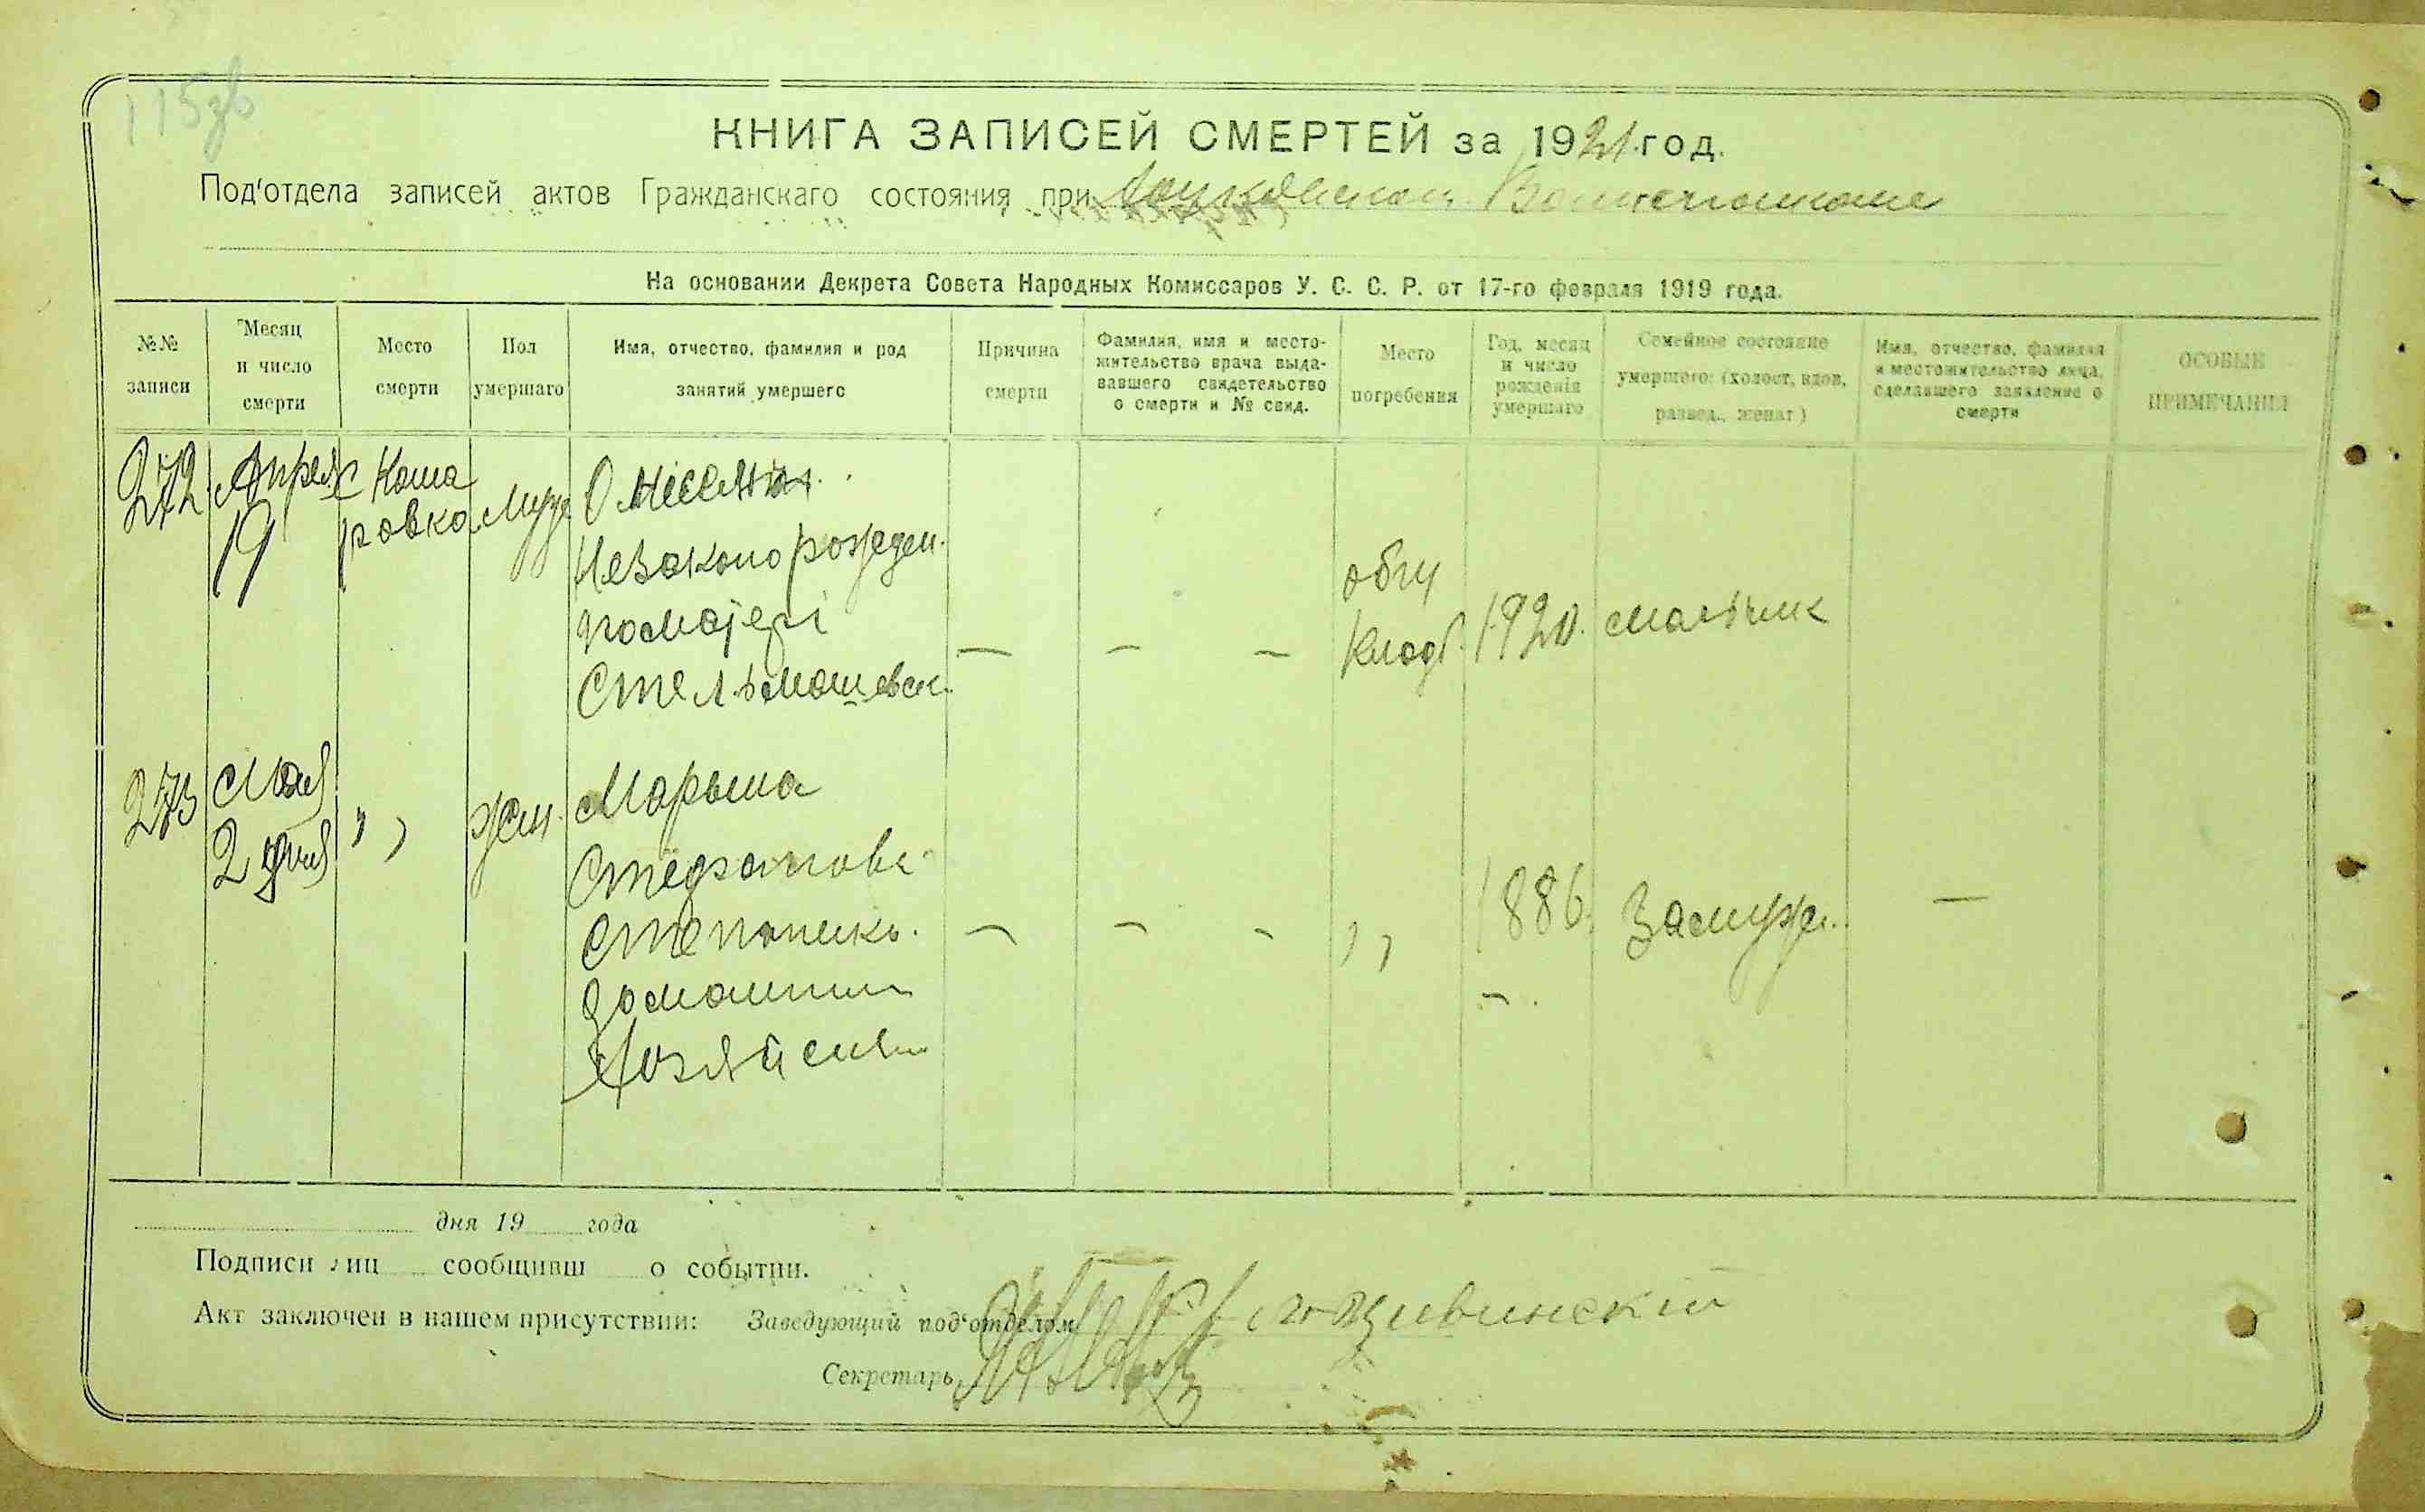 115зв
КНИГА ЗАПИСЕЙ СМЕРТЕЙ за 1921 год.
Под'отдела записей актов Гражданскаго состояния при
На основании Декрета Совета Народных Комиссаров У. С. С. Р. от 17-го февраля 1919 года.
№№ записи
Месяц и число смерти
Место смерти
Пол умершаго
Имя, отчество, фамилия и род занятий умершего
Причина смерти
Фамилия, имя и место-жительство врача выда-вавшего свидетельство о смерти и № свид.
Место погребения
Год, месяц и число рождения умершаго
Семейное состояние умершего: (холост, вдов, развед., женат)
Имя, отчество, фамилия и местожительство лица, сделавшего заявление о смерти
ОСОБЫЕ ПРИМЕЧАНИЯ
272 Апреля с Каша
19 ровка муж
Незаконорожден.
поматері
Стельмашевск.
— — — общ кладб. 1920. мальчик
273 Мая 2 дня " жен. Марьяна
Стефанова
Степанишин.
домашнии
Хозяйств
— — — " 1886. Замужн. —
дня 19 года
Подписи лиц сообщивш о событии.
Акт заключен в нашем присутствии: Заведующий под'отделом
Секретарь